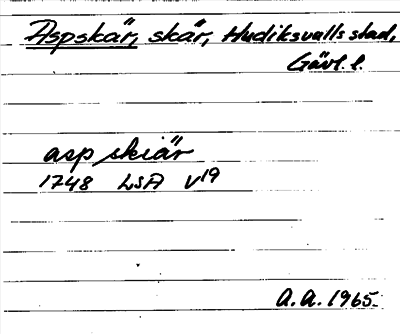 Aspskär, skär, Hudiksvalls stad,
Gävl. l.
asp skiär
1748 LSA V19
A.A. 1965.